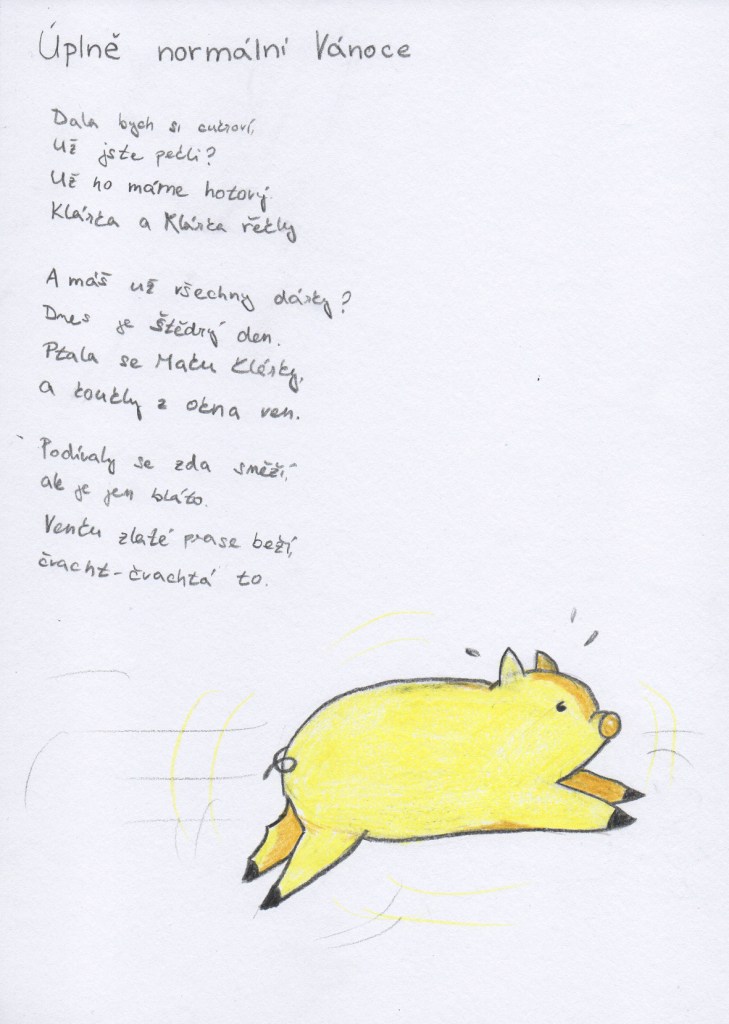 Úplně normální Vánoce
Dala bych si cukroví,
Už jste pekli?
Už ho máme hotový.
Klárka a Klárka řekly
A máš už všechny dárky?
Dnes je Štědrý den.
Ptala se Matku Klárky,
a koukly z okna ven.
Podívaly se zda sněží,
ale je jen bláto.
Venku zlaté prase beží,
čvacht-čvachtá to.